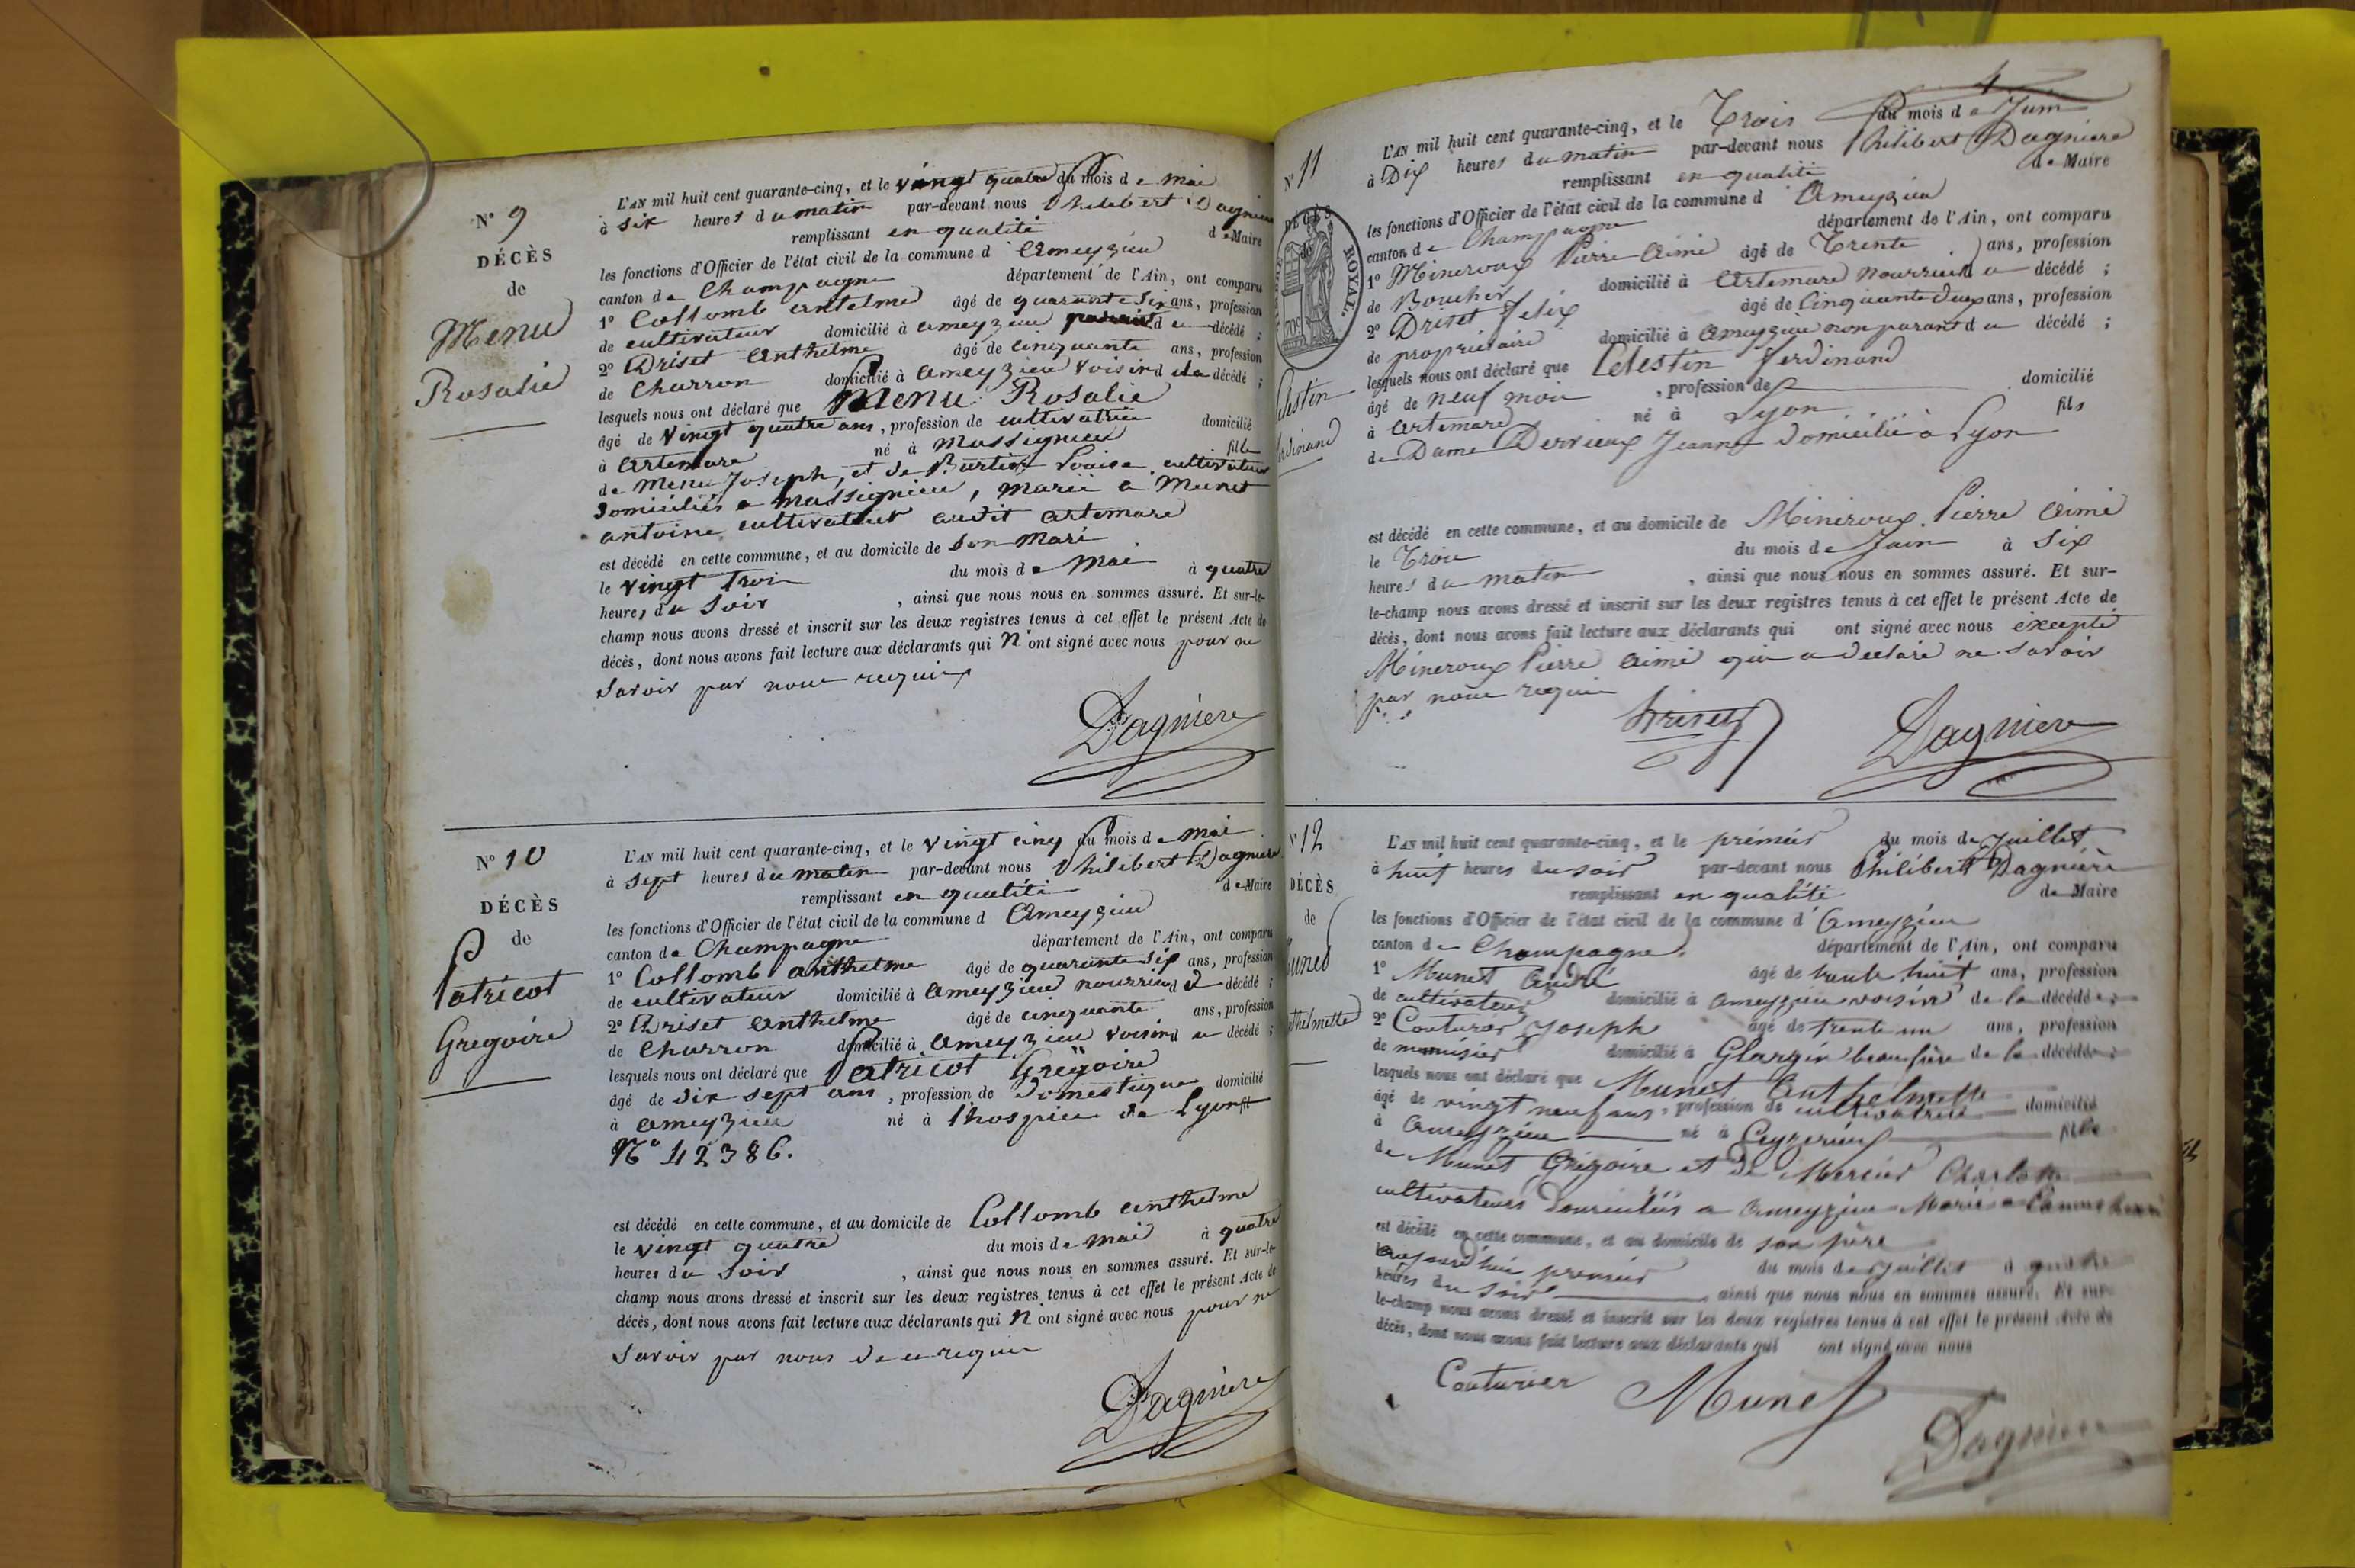 N° 9
DÉCÈS
de
Menu
Rosalie
L'AN mil huit cent quarante-cinq, et le vingt quatre du mois de mai
à six heures du matin par-devant nous Philibert Dagniere
remplissant en qualité de Maire
les fonctions d'Officier de l'état civil de la commune d'Ameyzieu
canton de Champagne département de l'Ain, ont comparu
1° Collomb antelme âgé de quarante six ans, profession
de cultivateur domicilié à ameyzieu du décédé ;
2° Driset Anthelme âgé de cinquante ans, profession
de Charron domicilié à ameyzieu voisin d la décédé ;
lesquels nous ont déclaré que Menu Rosalie
âgé de vingt quatre ans, profession de cultivatrice domicilié
à Artemare né à Massignieu fille
de Menu Joseph, et de Burtin Louise cultivateurs
domiciliés a Massignieu, mariée a Munet
antoine cultivateur audit artemare
est décédé en cette commune, et au domicile de son mari
le vingt trois du mois de mai à quatre
heures du soir, ainsi que nous nous en sommes assuré. Et sur-le-
champ nous avons dressé et inscrit sur les deux registres tenus à cet effet le présent Acte de
décès, dont nous avons fait lecture aux déclarants qui n'ont signé avec nous pour ne
savoir par nous requis
Dagniere
N° 10
DÉCÈS
de
Patricot
Gregoire
L'AN mil huit cent quarante-cinq, et le vingt cinq du mois de mai
à sept heures du matin par-devant nous Philibert Dagniere
remplissant en qualité de Maire
les fonctions d'Officier de l'état civil de la commune d Ameyzieu
canton de Champagne département de l'Ain, ont comparu
1° Collomb anthelme âgé de quarante six ans, profession
de cultivateur domicilié à ameyzieu nourricier d décédé ;
2° Driset Anthelme âgé de cinquante ans, profession
de Charron domicilié à Ameyzieu voisin du décédé ;
lesquels nous ont déclaré que Patricot Gregoire
âgé de dix sept ans, profession de Domestique domicilié
à ameyzieu né à l'hospice de Lyon fil
N° 42386.
est décédé en cette commune, et au domicile de Collomb anthelme
le vingt quatre du mois de mai à quatre
heures du soir, ainsi que nous nous en sommes assuré. Et sur-le-
champ nous avons dressé et inscrit sur les deux registres tenus à cet effet le présent Acte de
décès, dont nous avons fait lecture aux déclarants qui n'ont signé avec nous pour ne
savoir par nous de ce requis
Dagniere
4
N° 11
ROYAL.
lestin
rdinand
L'AN mil huit cent quarante-cinq, et le Trois du mois de Juin
à Dix heures du matin par-devant nous Philibert Dagniere
remplissant en qualité de Maire
les fonctions d'Officier de l'état civil de la commune d'Ameyzieu
canton de Champagne département de l'Ain, ont comparu
1° Mineroux Pierre Aimé âgé de Trente ans, profession
de Boucher domicilié à Artemare nourricier du décédé ;
2° Driset Felix âgé de Cinquante deux ans, profession
de propriétaire domicilié à Ameyzieu non parant du décédé ;
lesquels nous ont déclaré que Celestin Ferdinand
âgé de neuf mois, profession de domicilié
à Artemare né à Lyon fils
de Dame Dervieux Jeanne domicilié à Lyon
est décédé en cette commune, et au domicile de Mineroux Pierre Aimé
le Trois du mois de Juin à six
heures du matin, ainsi que nous nous en sommes assuré. Et sur-
le-champ nous avons dressé et inscrit sur les deux registres tenus à cet effet le présent Acte de
décès, dont nous avons fait lecture aux déclarants qui ont signé avec nous excepté
Mineroux Pierre Aimé qui a declaré ne savoir
par nous requis
Driset Dagniere
N° 12
DÉCÈS
de
thelmette
L'AN mil huit cent quarante-cinq, et le prémier du mois de Juillet
à huit heures du soir par-devant nous Philibert Dagnière
remplissant en qualité de Maire
les fonctions d'Officier de l'état civil de la commune d'Ameyzieu
canton de Champagne département de l'Ain, ont comparu
1° Munet André âgé de trente huit ans, profession
de cultivateur domicilié à ameyzieu voisin de la décédée ;
2° Couturier Joseph âgé de trente un ans, profession
de menuisier domicilié à beaufrère de la décédée ;
lesquels nous ont déclaré que Munet Anthelmette
âgé de vingt neuf ans, profession de cultivatrice domicilié
à Ameyzieu né à Ceyzerieu fille
de Munet Grégoire et de Mercier Charlotte
cultivateurs domiciliés a Ameyzieu Mariée a
est décédé en cette commune, et au domicile de son père
aujourd'hui premier du mois de Juillet à quatre
heures du soir, ainsi que nous nous en sommes assuré. Et sur-
le-champ nous avons dressé et inscrit sur les deux registres tenus à cet effet le présent Acte de
décès, dont nous avons fait lecture aux déclarants qui ont signé avec nous
Couturier Munet
Dagniere